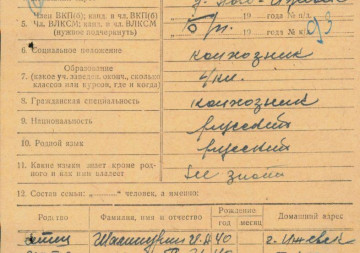 5. Член ВКП(б); канд. в чл. ВКП(б)
Чл. ВЛКСМ; канд. в чл. ВЛКСМ
(нужное подчеркнуть)
19 года №к/б
б/п. 19 года №к/б
93
6. Социальное положение колхозник
7. Образование
(какое уч. заведен. окончил, сколько
классов или курсов, где и когда)
4 кл.
8. Гражданская специальность колхозник
9. Национальность русский
10. Родной язык русский
11. Какие языки знает кроме род-
ного и как ими владеет
не знает
12. Состав семьи: человек, а именно:
Родство Фамилия, имя и отчество Рождение Домашний адрес
год месяц
отец 40 г. Ижевск